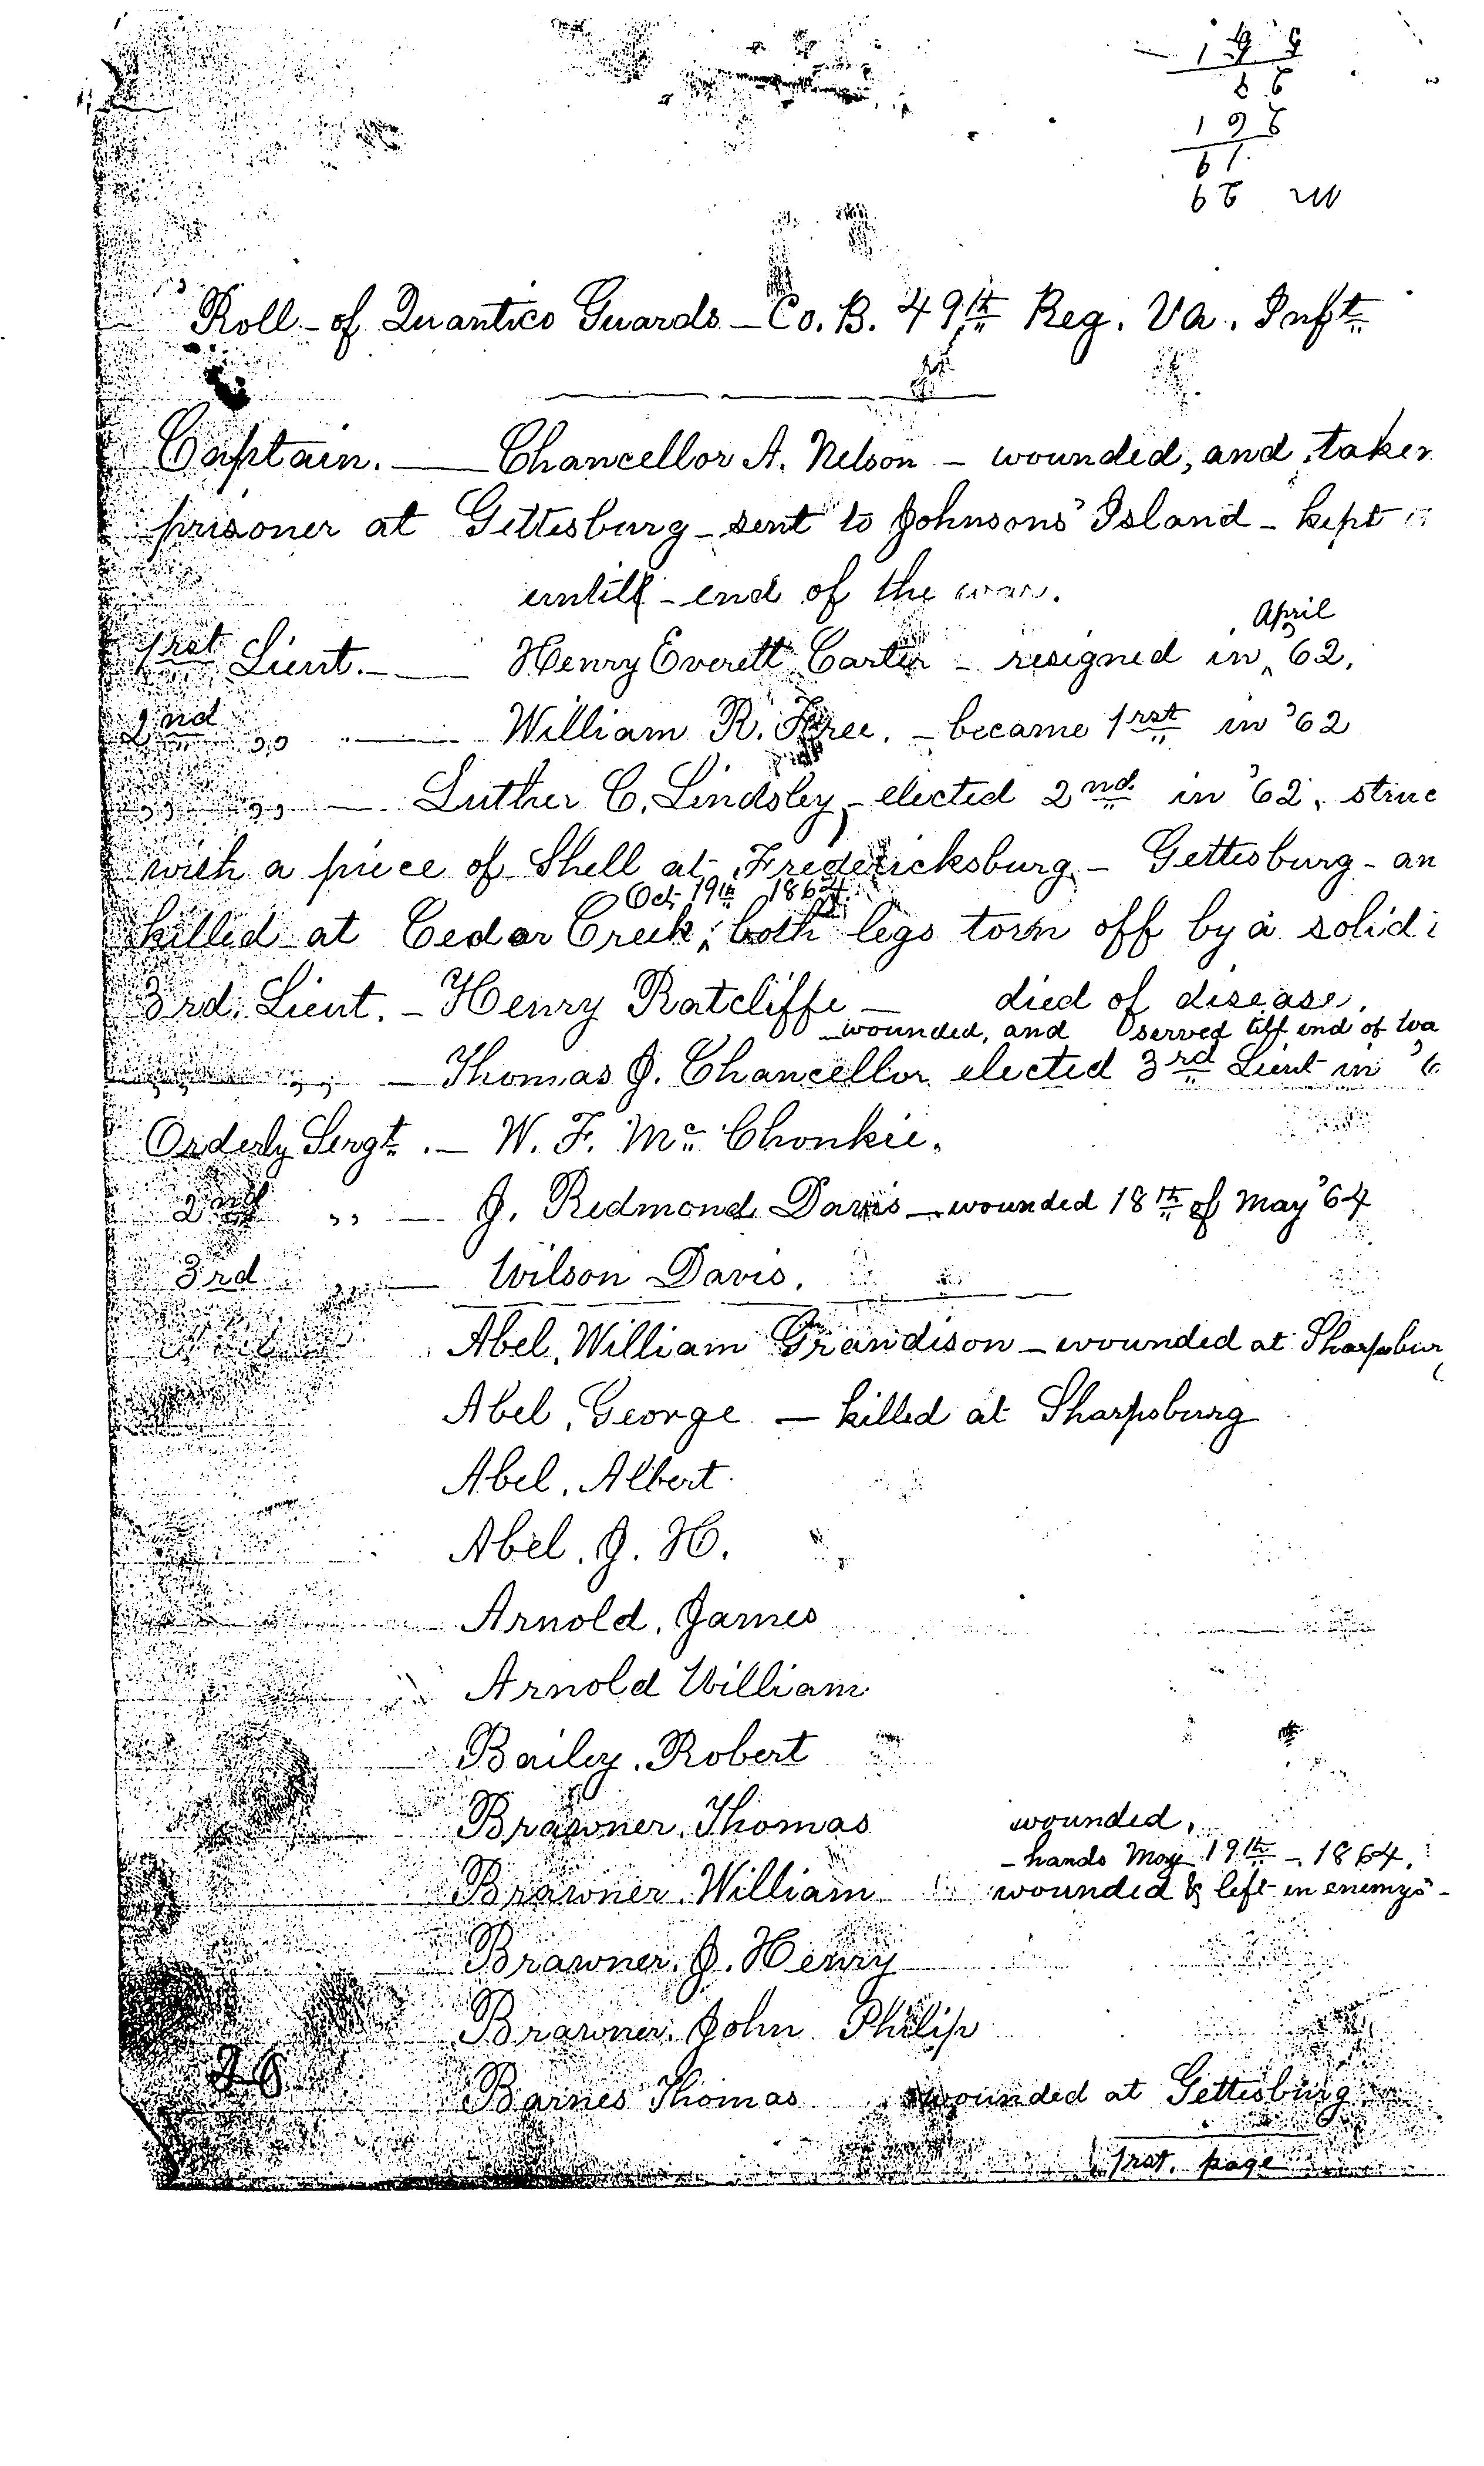 Roll - of Quantico Guards - Co. B. 49th Reg. Va. Inft.
Captain. — Chancellor A. Nelson - wounded, and taken
prisoner at Gettesburg - sent to Johnsons' Island - kept
untill - end of the war.
April
1rst Lieut. — Henry Everett Carter - resigned in ^ '62,
2nd ,, — William R. Free. - became 1rst in '62
,, ,, — Luther C. Lindsley, - elected 2nd in '62, struc
with a piece of Shell at Fredericksburg - Gettesburg - an
Oct 19th 1864
killed at Cedar Creek, both legs torn off by a solid
3rd. Lieut. - Henry Ratcliffe - died of disease.
wounded, and served till end of wa
,, ,, - Thomas J. Chancellor elected 3rd Lieut in '6
Orderly Sergt. - W. F. Mc Chonkie.
2nd ,, — J. Redmond Davis - wounded 18th of May '64
3rd ,, — Wilson Davis.
Abel, William Grandison - wounded at Sharpsbur
Abel, George - killed at Sharpsburg
Abel, Albert
Abel, J. H.
Arnold, James
Arnold William
Bailey, Robert
Brawner, Thomas wounded,
- hands May 19th - 1864.
Brawner, William wounded & left in enemys -
Brawner, J. Henry
Brawner, John Philip
26
Barnes Thomas wounded at Gettesburg
1rst. page